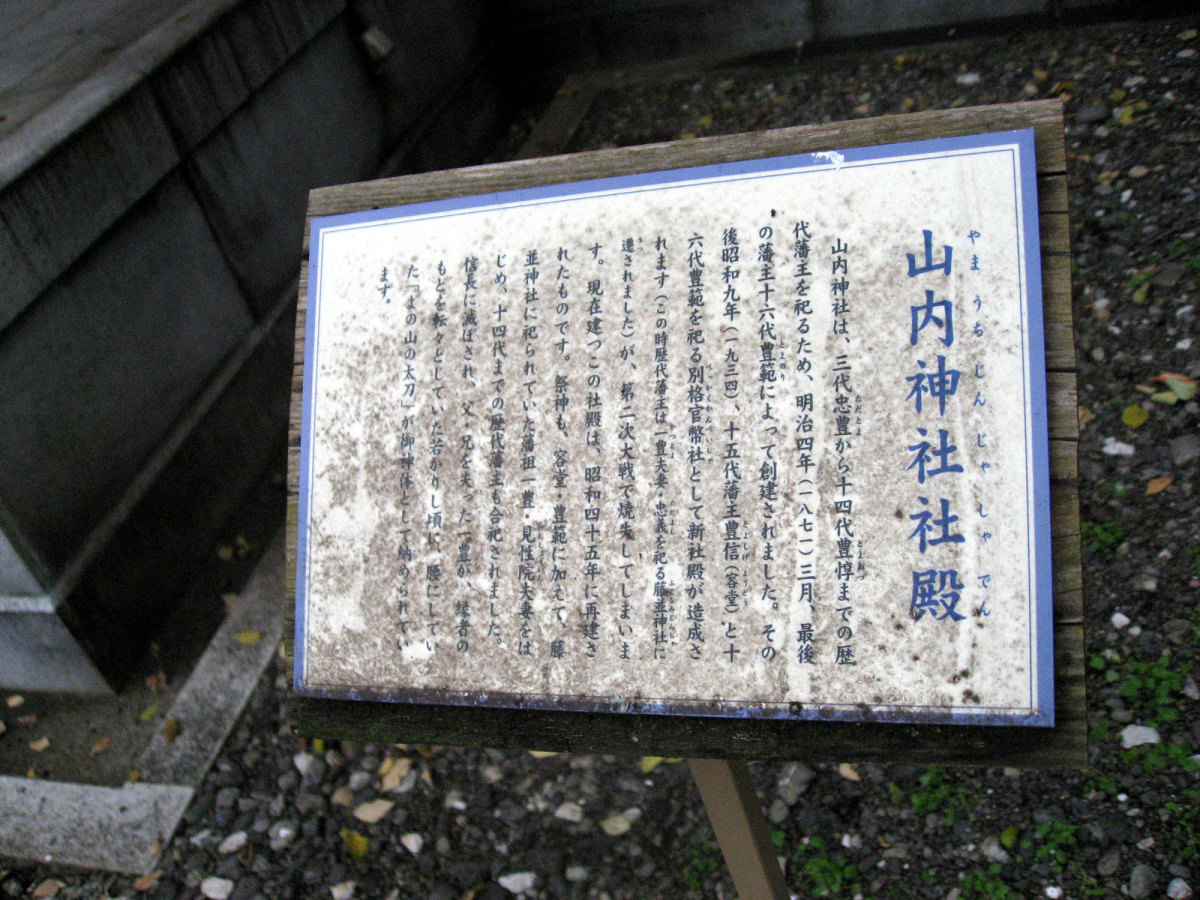 山内神社社殿
やまうちじんじゃしゃでん
山内神社は、三代忠豊から十四代豊惇までの歴
代藩主を祀るため、明治四年（一八七一）三月、最後
の藩主十六代豊範によって創建されました。その
後昭和九年（一九三四）、十五代藩主豊信（容堂）と十
六代豊範を祀る別格官幣社として新社殿が造成さ
れます（この時歴代藩主は一豊夫妻・忠義を祀る藤並神社に
遷されました）が、第二次大戦で焼失してしまいま
す。現在建つこの社殿は、昭和四十五年に再建さ
れたものです。祭神も、容堂・豊範に加えて、藤
並神社に祀られていた藩祖一豊・見性院夫妻をは
じめ、十四代までの歴代藩主も合祀されました。
信長に滅ぼされ、父・兄を失った一豊が、縁者の
もとを転々としていた若かりし頃に、腰にしてい
た「よの山の太刀」が御神体として納められてい
ます。